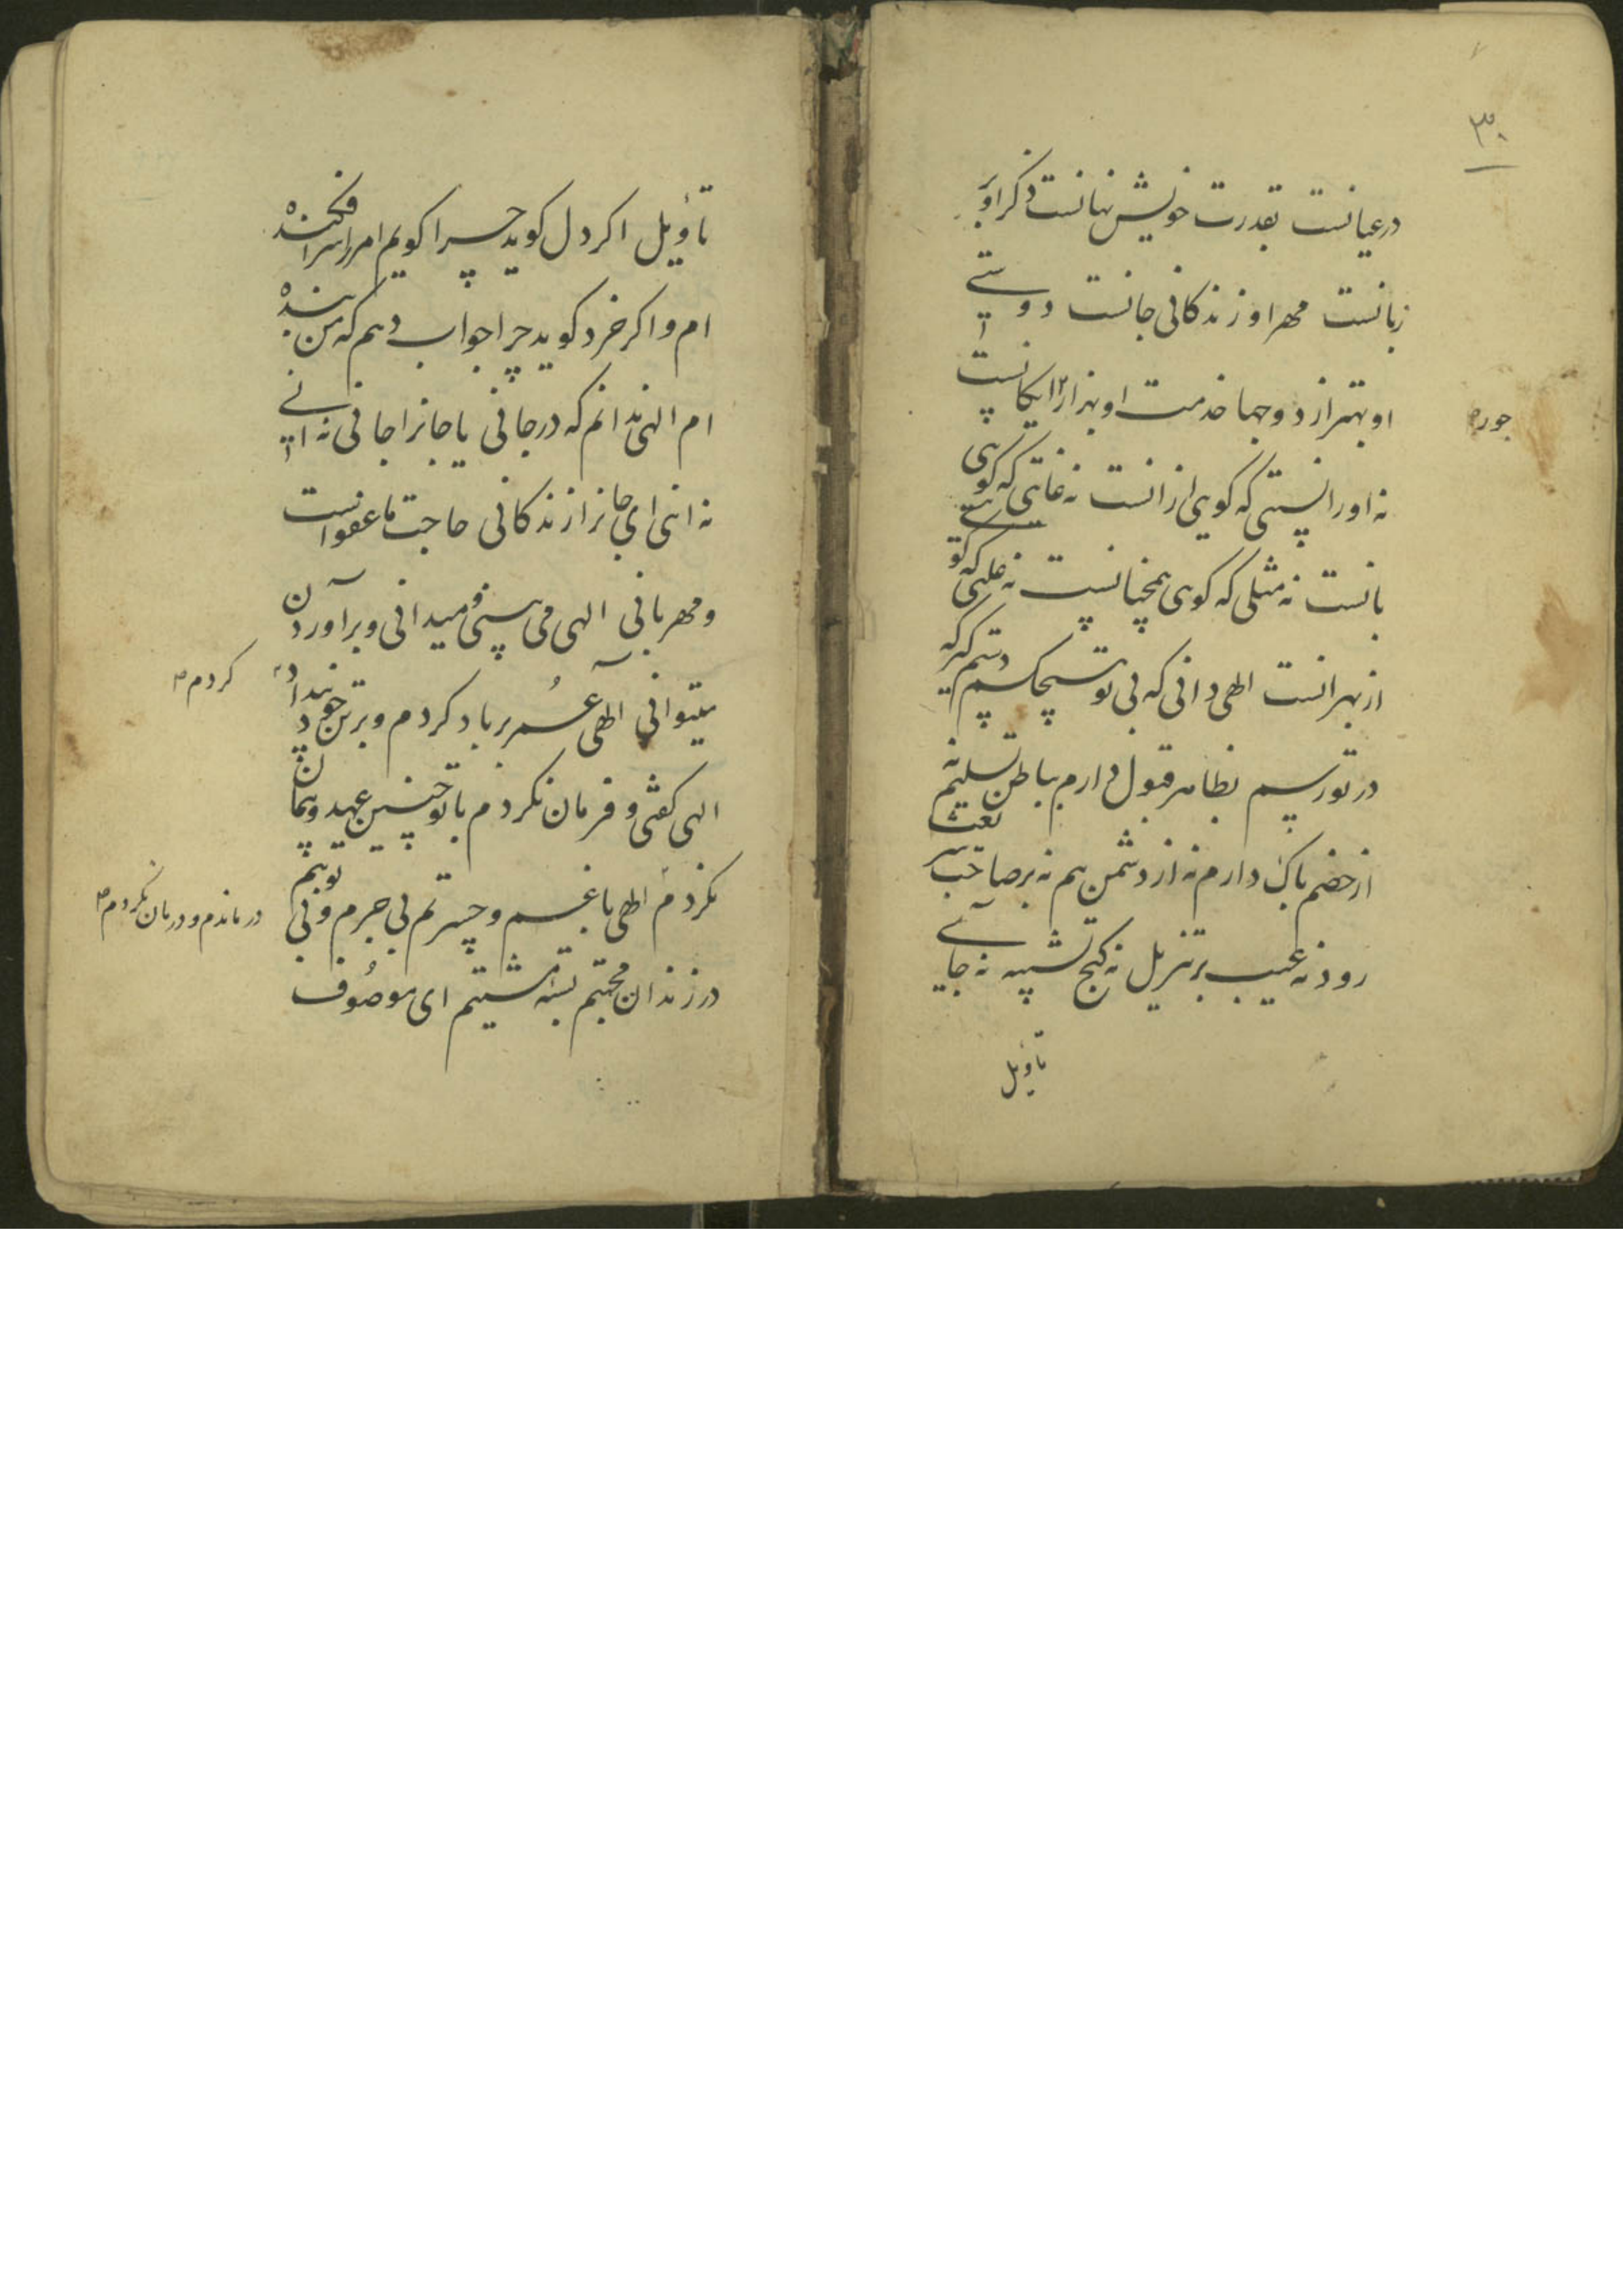 ۳۰
در عیانست بقدرت خویش نهانست ذکر او بر
زبانست مهر او زندکانی جانست دوستی
او بهتر از دو جهان خدمت او بهزار رایکانست
جور
نه او را نیستی که کوی ازانست نه غایتی که کوی
بانست نه مثلی که کوی همچنانست نه علتی که کو
از بهر انست الهی دانی که بی تو هیچکسم دستم کیر که
در تو رسیم بظاهر قبول دارم بباطن تسلیم نه
از خصم باک دارم نه از دشمن بیم نه بر صاحب
رود نه عیب بر تنزیل نه کنج تشبیه نه جای
تاویل
تأویل اکر دل کوید چرا کویم امر را سرافکنده
ام و اکر خرد کوید چرا جواب دهم که من بنده
ام الهی ندانم که در جانی یا جانرا جانی نه
نه انی ای جانرا زندکانی حاجت ما عفو است
و مهربانی الهی می بینی و میدانی و برآوردن
میتوانی الهی عمر بر باد کردم و بر تن خود بیداد
کردم
الهی کفتی و فرمان نکردم با تو چنین عهد و پیمان
نکردم الهی با غم و حسرتم بی جرم و بی
درماندم و درمان نکردم
در زندان محنتم بسته مشیتم ای موصوف